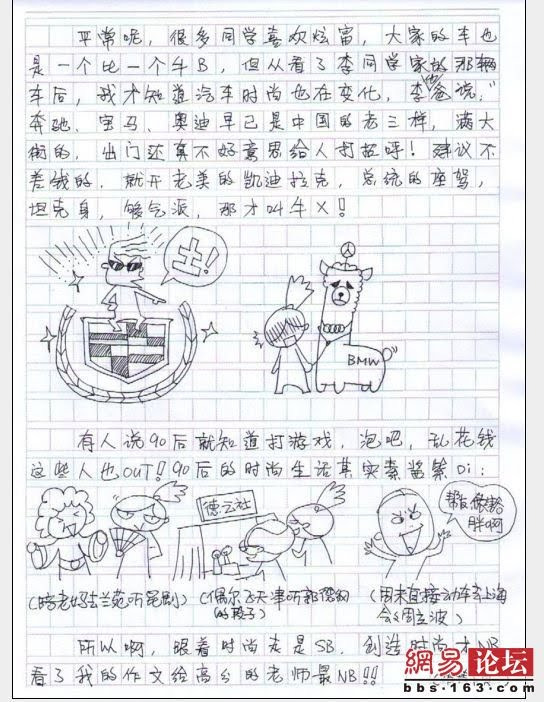 平常呢，很多同学喜欢炫富，大家的车也
是一个比一个牛B，但从看了李同学家的那辆
车后，我才知道汽车时尚也在变化，李他爸说："
奔驰、宝马、奥迪早已是中国的老三样，满大
街的，出门还真不好意思给人打招呼！建议不
差钱的，就开老美的凯迪拉克，总统的座驾，
坦克身，够气派，那才叫牛X！
土！
BMW
有人说90后就知道打游戏，泡吧，乱花钱
这些人也OUT！90后的时尚生活其实素酱紫Di：
德云社
帮我
胖啊
(陪老妈去兰苑听昆剧)
(偶尔飞天津听郭德纲
的段子)
(周末直接动车去上海
会会周立波)
所以啊，跟着时尚走是SB，创造时尚才NB
看了我的作文给高分的老师最NB!!
網易论坛
bbs.163.com